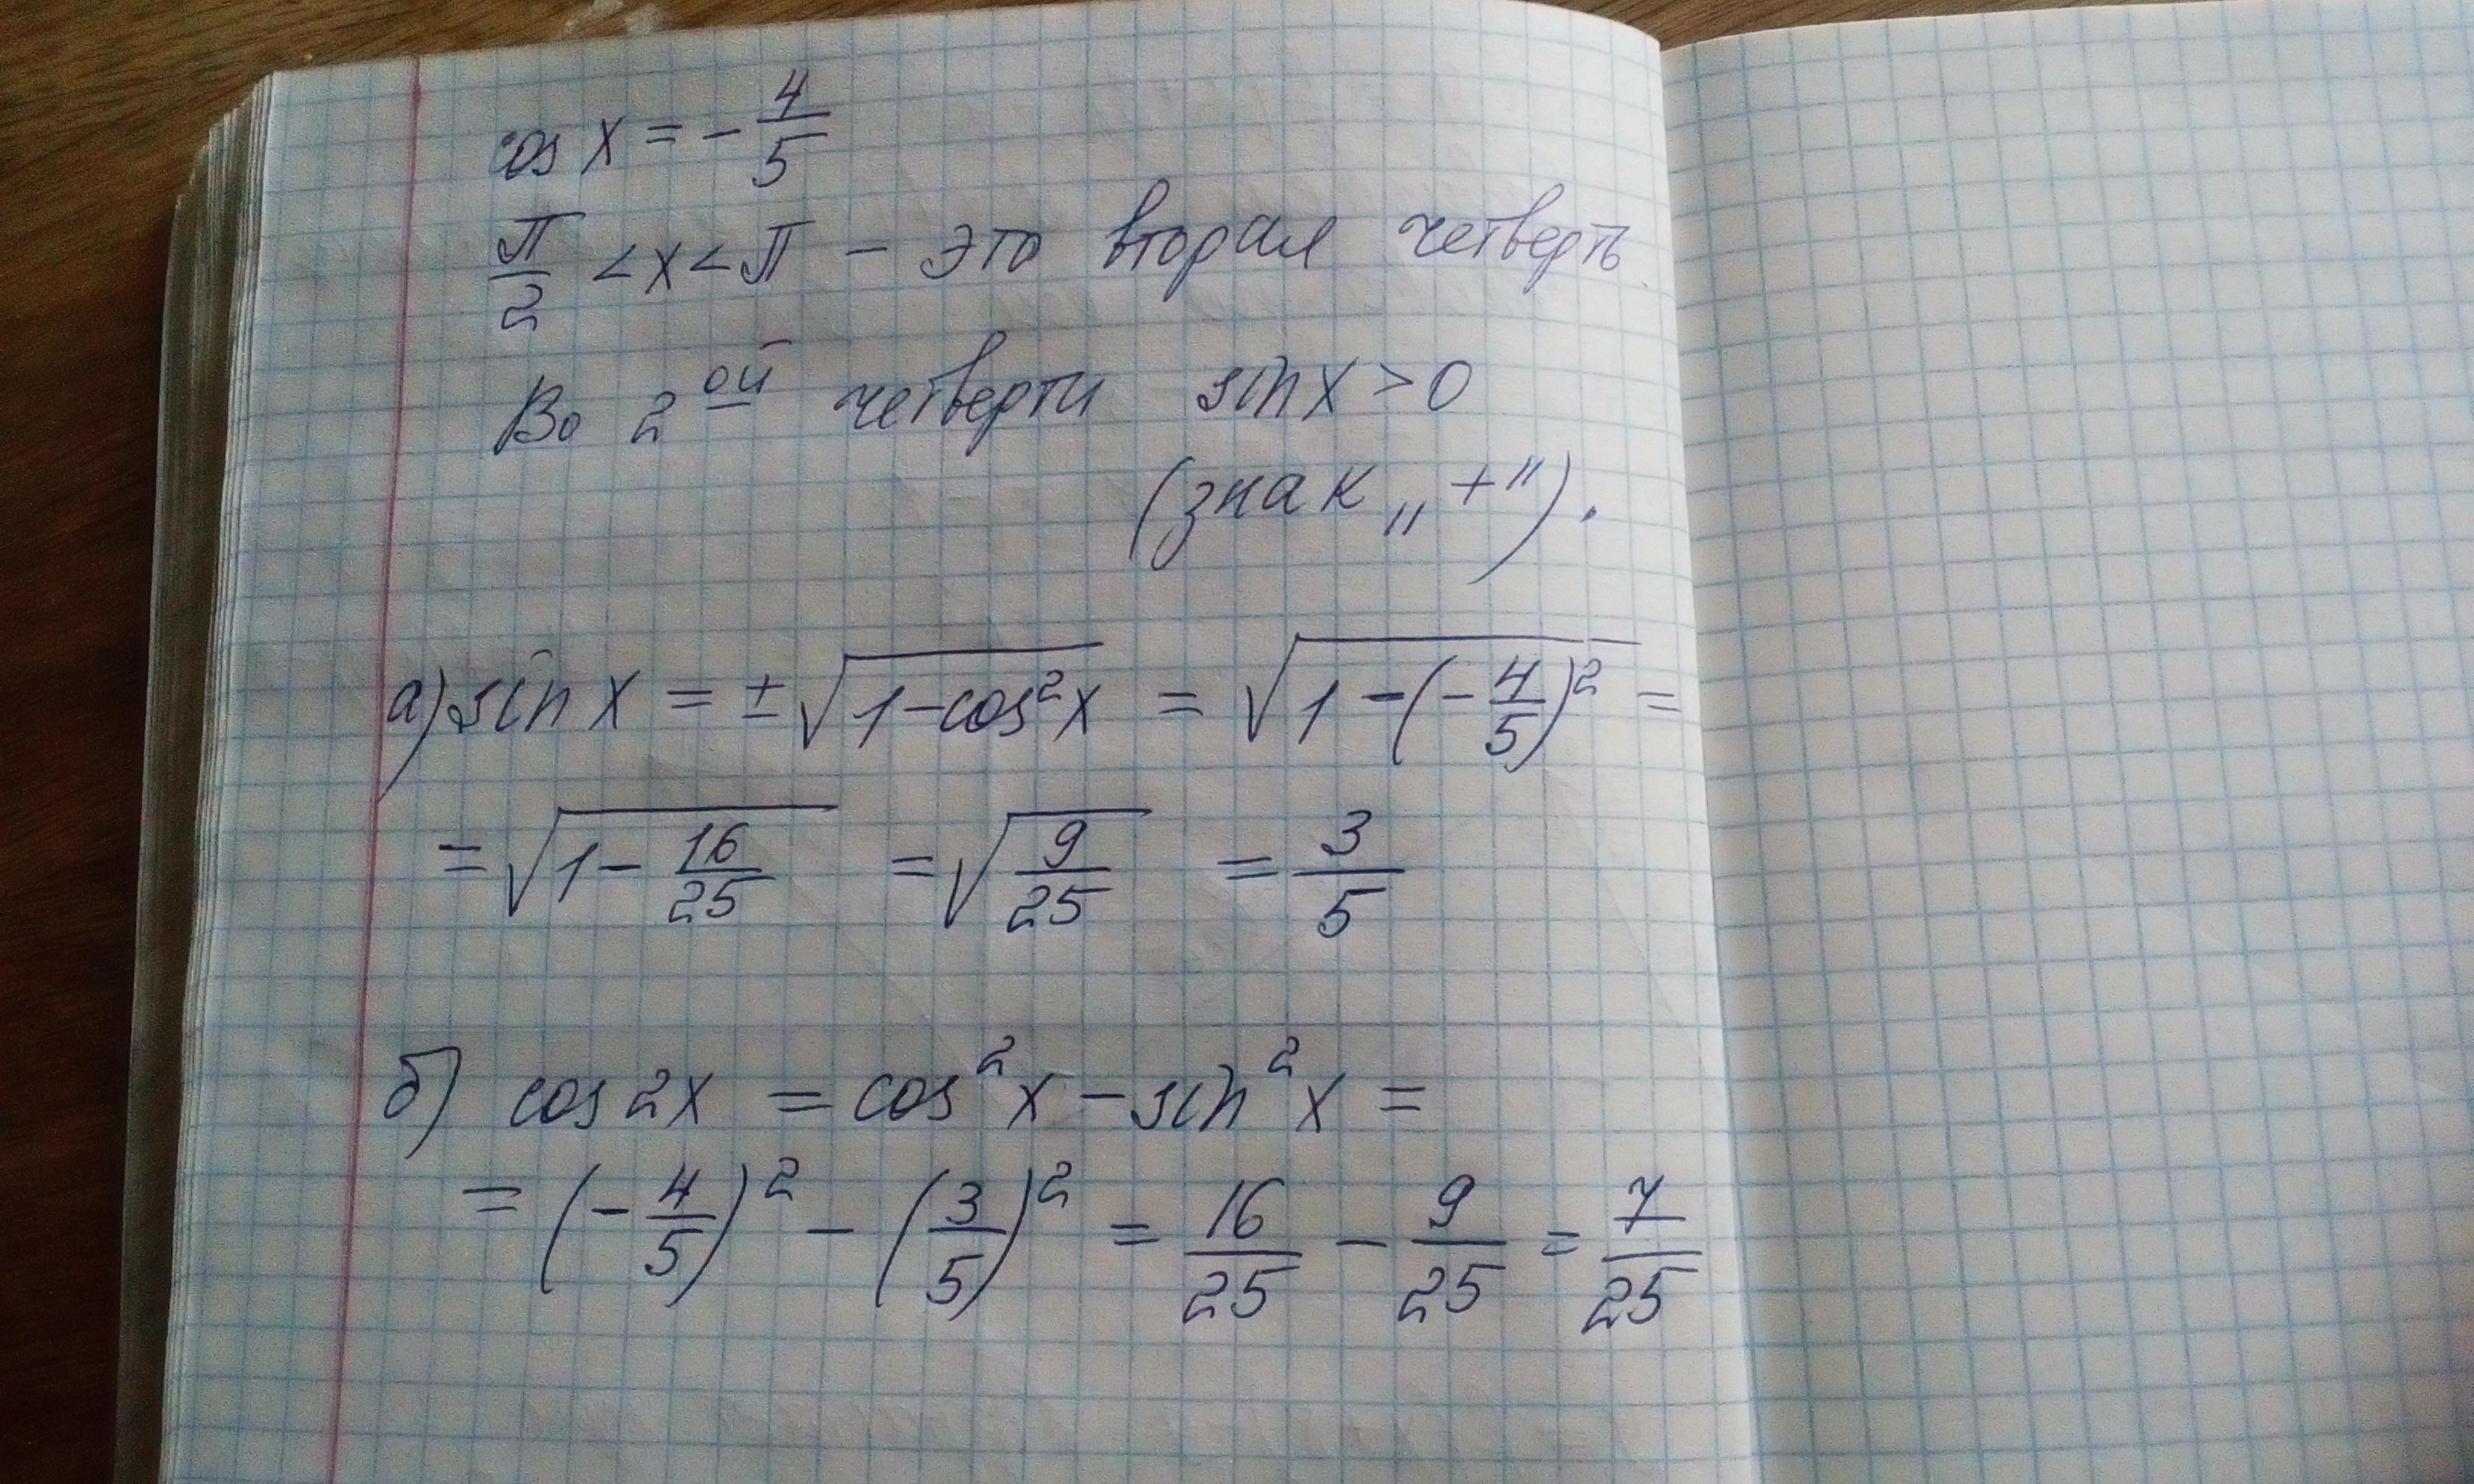 cos x = - 4/5
π/2 < x < π – это вторая четверть
Во 2ой четверти sin x > 0
(знак „+").
а) sin x = ±√(1-cos²x) = √(1-(-4/5)²) =
= √(1 - 16/25) = √(9/25) = 3/5
б) cos 2x = cos²x - sin²x =
= (-4/5)² - (3/5)² = 16/25 - 9/25 = 7/25